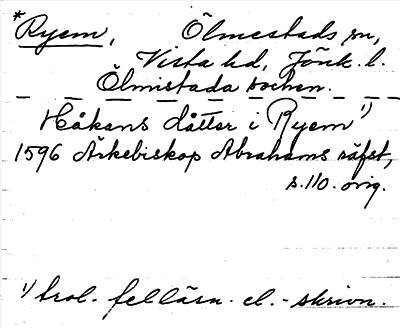 *Ryem, Ölmestads sn,
Vista hd, Jönk. l.
Ölmistada sochen.
Håkans dåtter i Ryem 1)
1596 Ärkebiskop Abrahams räfst,
s. 110. orig.
1) trol. felläsn. el. -skrivn.